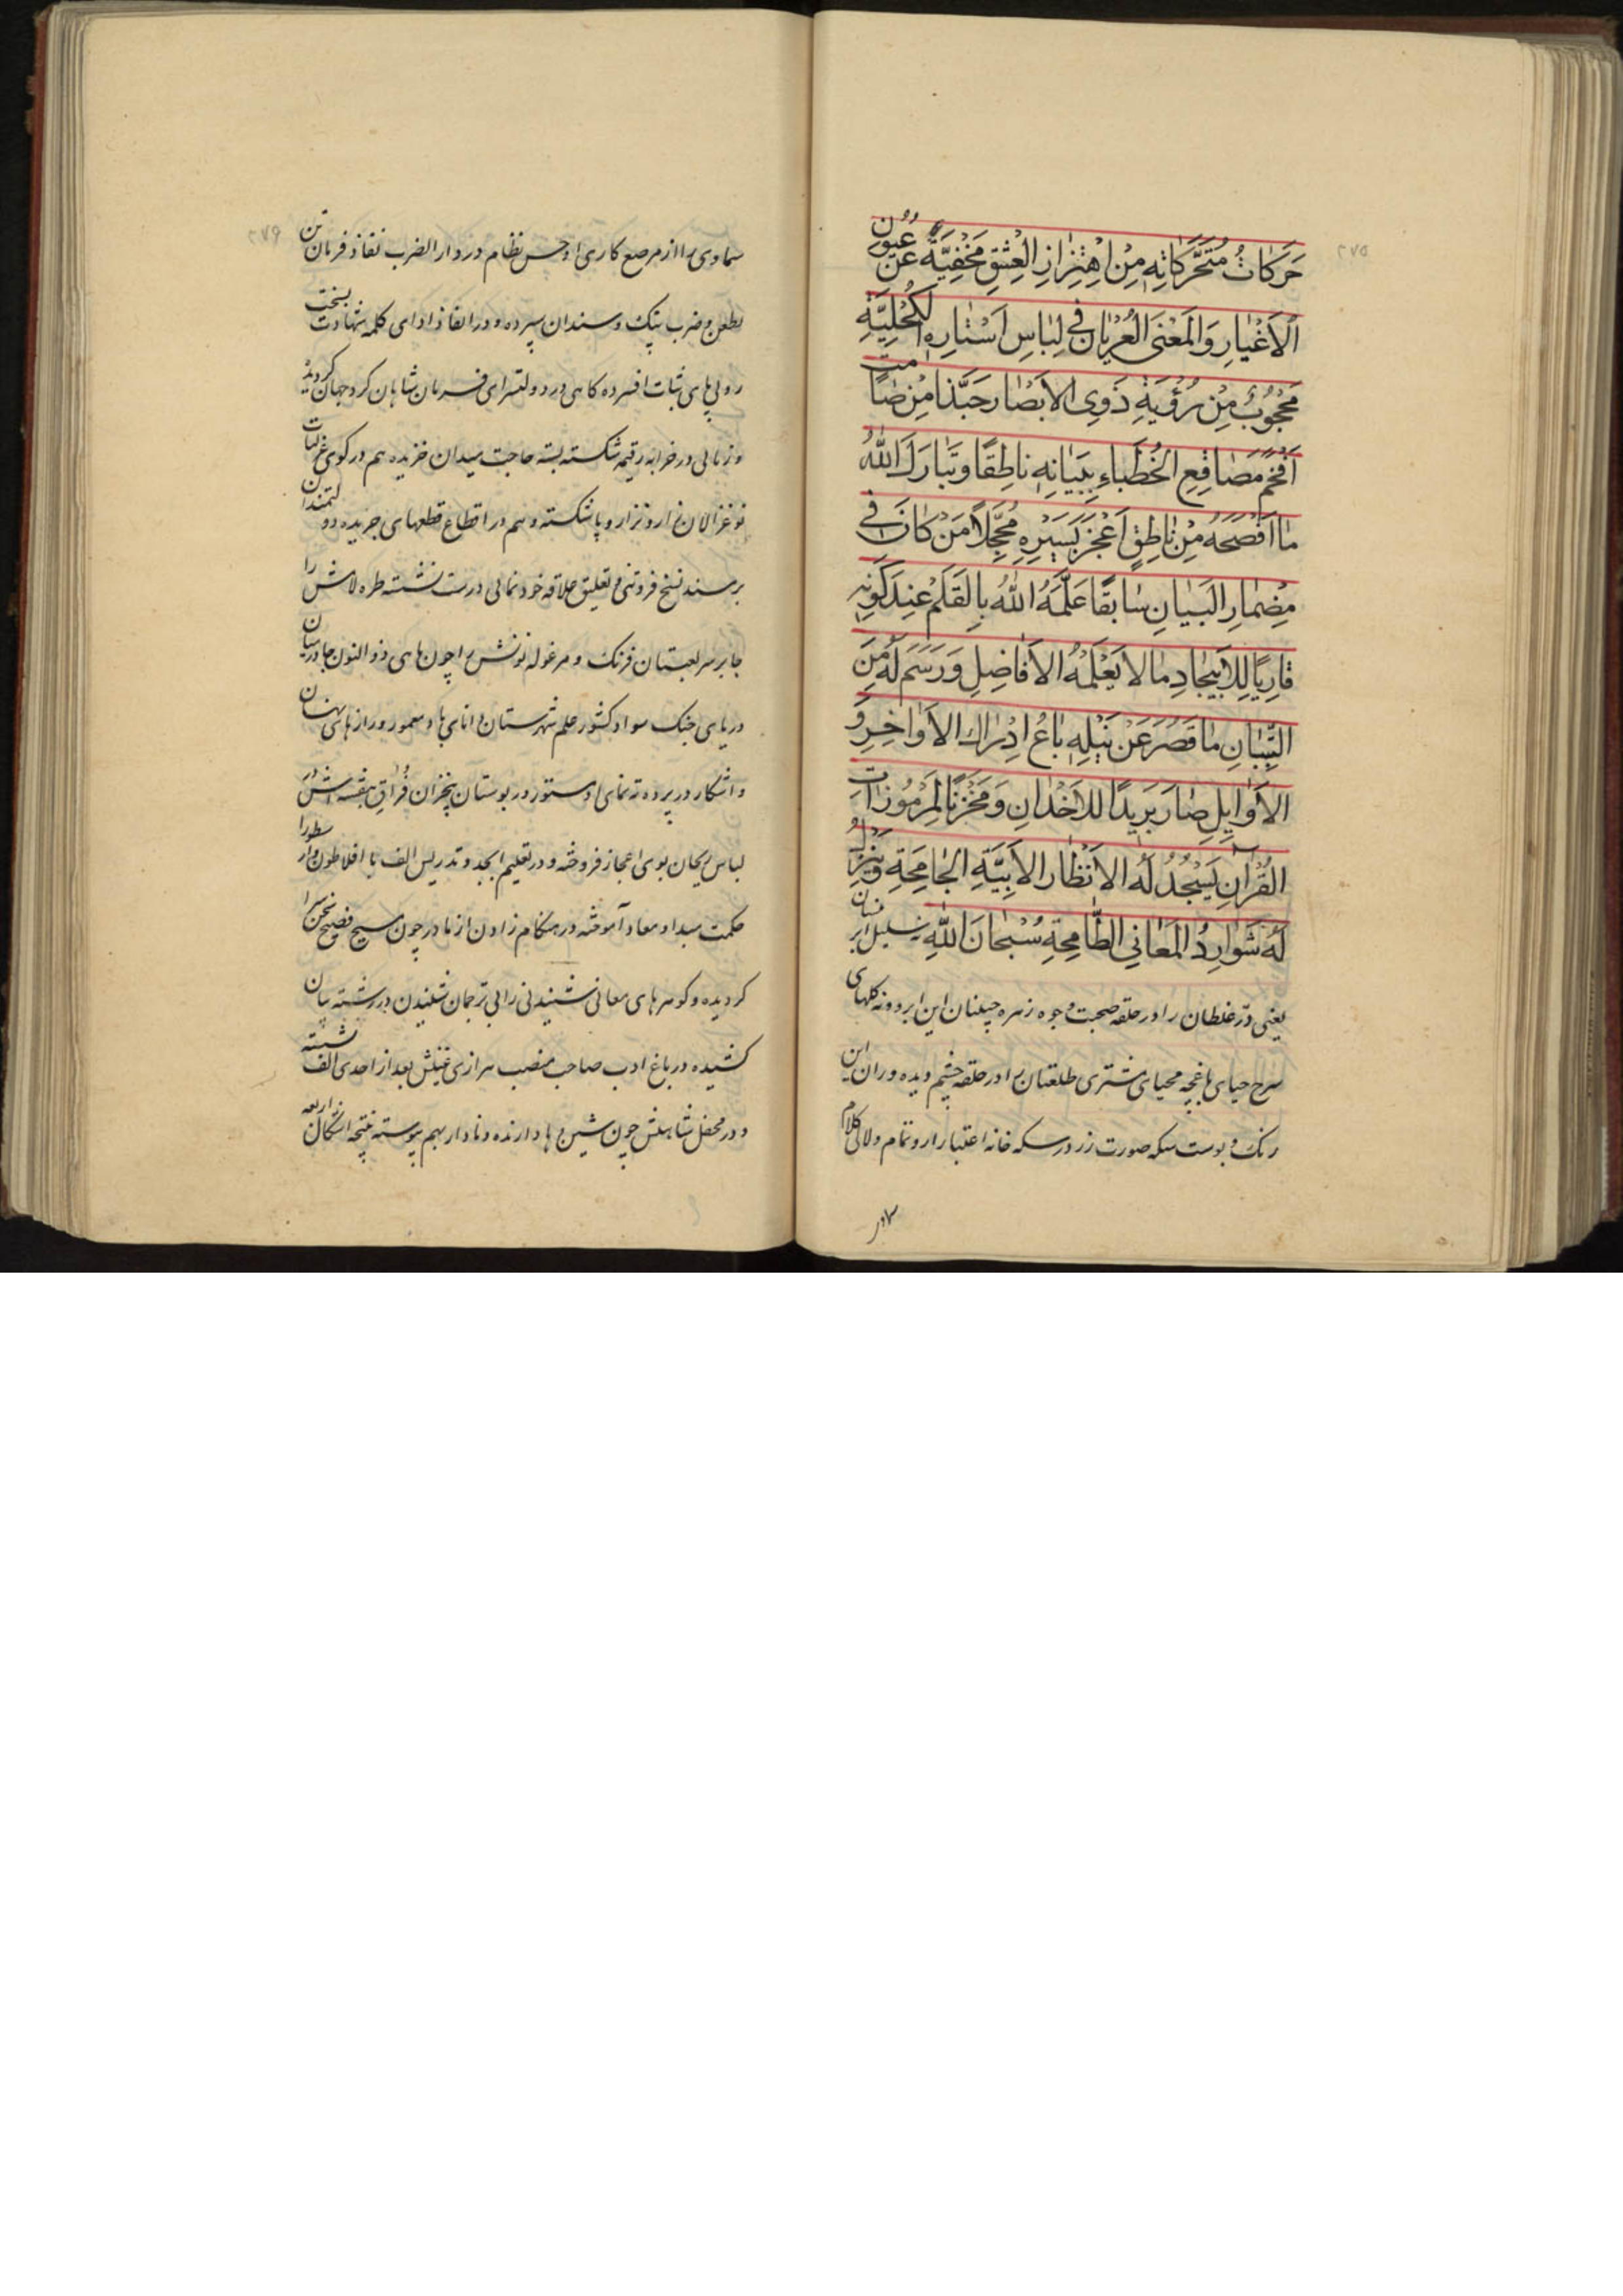 ۲۷۵
حَرَكَاتُ مُتَحَرَّكَاتِهِ مِنْ اِهْتِزَازِ الْعِشْقِ مَخْفِيَّةٌ عَنْ عُيُونِ
الْاَغْيَارِ وَالْمَعْنَى الْعُرْيَانُ فِي لِبَاسِ اَسْتَارِهِ الْكُحْلِيَّةِ
مَحْجُوبٌ مِنْ رُؤْيَةِ ذَوِي الْاَبْصَارِ حَبَّذَا مِنْ صَامِتٍ
اَفْحَمَ مَصَاقِعِ الْخُطَبَاءِ بِبَيَانِهِ نَاطِقًا وَتَبَارَكَ اللّٰهُ
مَا اَفْصَحَهُ مِنْ نَاطِقٍ اَعْجَزَ بِسَيْرِهِ مُحَجَّلًا مَنْ كَانَ فِي
مِضْمَارِ الْبَيَانِ سَابِقًا عَلَّمَهُ اللّٰهُ بِالْقَلَمِ عِنْدَ كَوْنِهِ
قَارِيًا لِلْاَبْيجَادِ مَا لَا يَعْلَمُهُ الْاَفَاضِلِ وَرَسَمَ لَهُ مِنَ
التِّبْيَانِ مَا قَصُرَ عَنْ نَيْلِهِ بَاعُ اِدْرَاكِ الْاَوَاخِرِ وَ
الْاَوَايِلِ صَارَ بَرِيدًا لِلْاَخْدَانِ وَمَخْزَنًا لِمَرْمُوزَاتِ
الْقُرْآنِ يَسْجُدُ لَهُ الْاَنْظَارِ الْاَبِيَّةِ الْجَامِحَةِ وَيَنْزِلُ
لَهُ شَوَارِدُ الْمَعَانِي الطَّامِحَةِ سُبْحَانَ اللّٰهِ سلسبیل
یعنی در غلطان را در حلقه صحبت وجوه زهره جبینان این ابرو و نه کلهای
سرخ حیای باغچه محیای مشتری طلعتان را در حلقه چشم دیده وران این
رنک و بوست سکه صورت زر در سکه خانه اعتبار ار و تمام و لالی کلام
سماوی
۲۷۶
سماوی را از مرصع کاری او حسن نظام در دار الضرب نفاذ فرمان تن
بطعن و ضرب پتک و سندان سپرده و در انفاذ ادای کلمه شهادت بسخت
رویی‌های ثبات افسرده کاهی در دولتسرای فرمان شاهان کرد جهان کردید
و زمانی در خرابه رقیمه شکسته بسته حاجت میدان خزیده هم در کوی غزلیات
نو غزالان زار و نزار و پا شکسته و هم در اقطاع قطعهای جریده دولتمندان
بر مسند نسخ فروتنی و تعلیق علاقه خودنمایی درست نشسته طره لامش را
جا بر سر لعبتان فرنک و مرغوله نونش را چون ماهی ذوالنون جا در میان
دریای جنک سواد کشور علم شهرستان دانایی‌ها و معمور و رازهای نهان
و آشکار در پرده ته نمای او مستور در بوستان بیخزان فراق بنفشه اش
لباس ریحان بوی اعجاز فروخته و در تعلیم ابجد و تدریس الف با افلاطون وار سطور را
حکمت مبدا و معاد آموخته در هنکام زادن از مادر چون مسیح فصیح سخن سرا
کردیده و کوهرهای معانی نشنیدنی را بی ترجمان شنیدن در رشته بیان
کشیده در باغ ادب صاحب منصب هزاری غنیش بعد از احدی الف نشسته
و در محفل شاهنش چون شین ها دارنده و نادار بهم پیوسته نتیجه اشکال اربعه